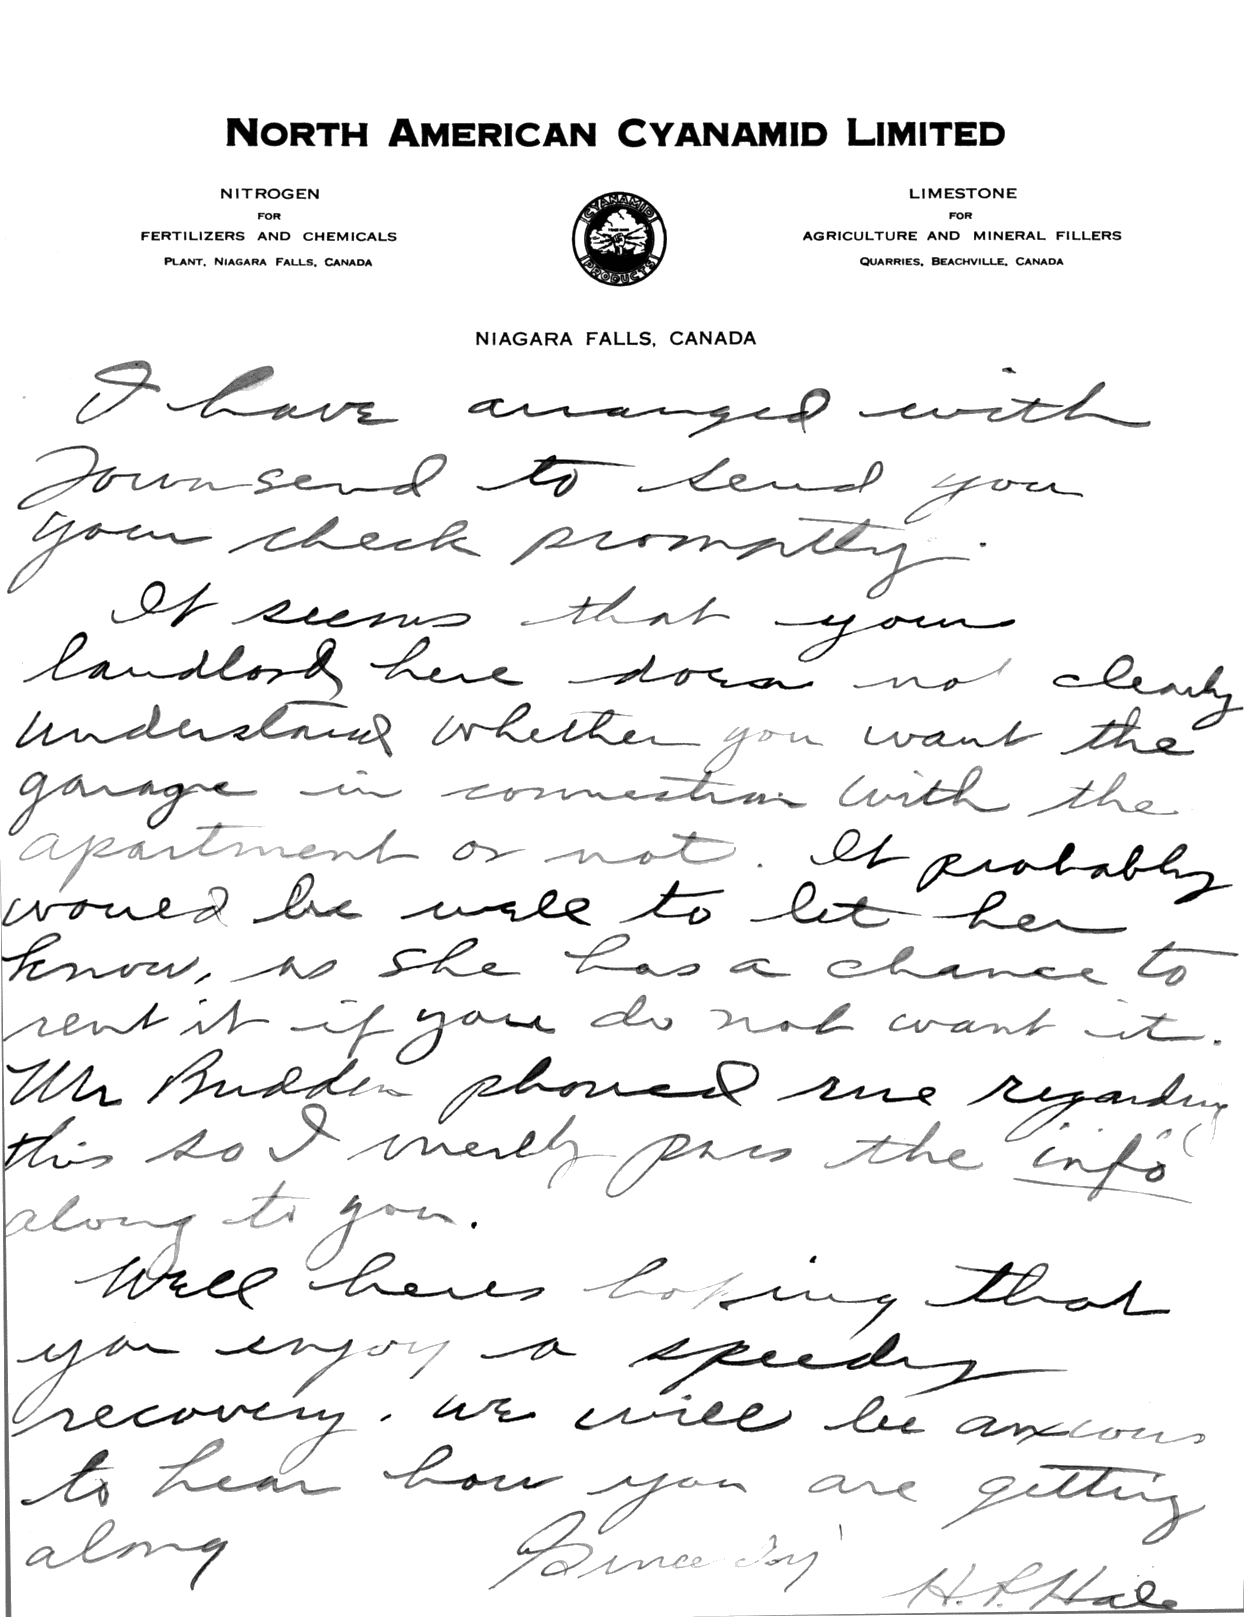 NORTH AMERICAN CYANAMID LIMITED
NITROGEN
FOR
FERTILIZERS AND CHEMICALS
PLANT, NIAGARA FALLS, CANADA
CYANAMID
PRODUCTS
LIMESTONE
FOR
AGRICULTURE AND MINERAL FILLERS
QUARRIES, BEACHVILLE, CANADA
NIAGARA FALLS, CANADA
I have arranged with
Townsend to send you
your check promptly.
It seems that your
landlord, here does not clearly
understand whether you want the
garage in connection with the
apartment or not. It probably
would be well to let her
know, as she has a chance to
rent it if you do not want it.
Mr Budden phoned me regarding
this so I merely pass the "info"
along to you.
Well heres hoping that
you enjoy a speedy
recovery. We will be anxious
to hear how you are getting
along
Sincerely
H. P. Hale